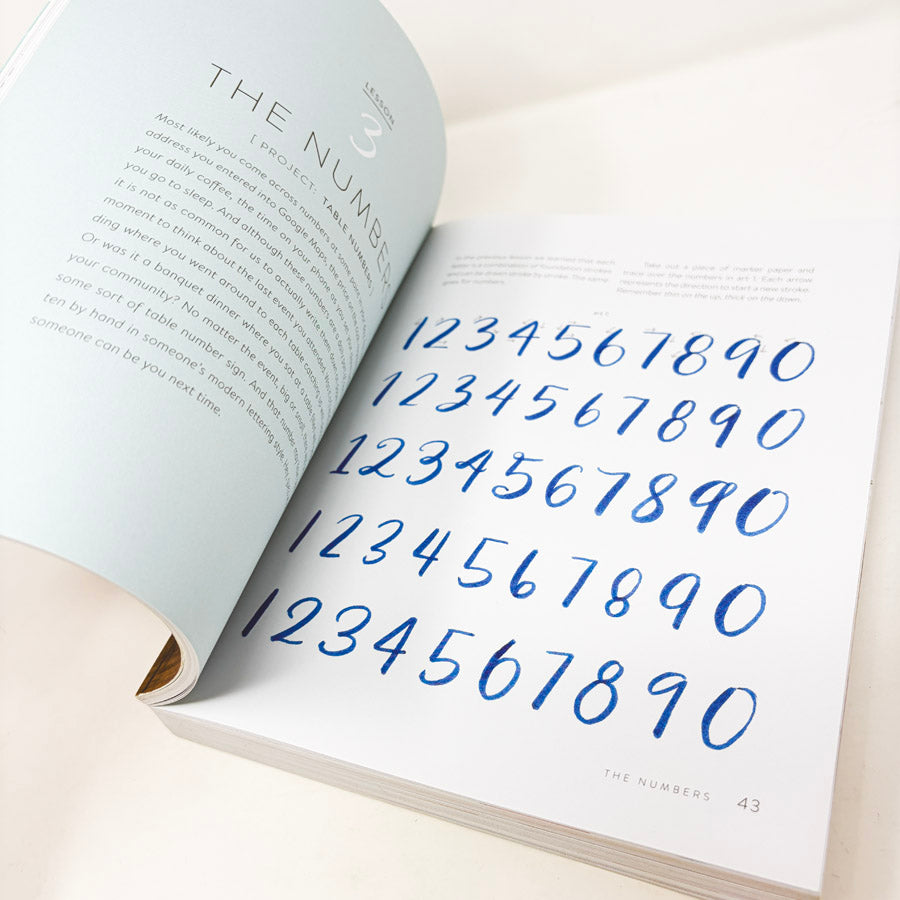 LESSON
3
THE NUMBERS
[ PROJECT: TABLE NUMBERS
Most likely you come across numbers at some point
address you entered into Google Maps, the price of
your daily coffee, the time on your phone as you set
you go to sleep. And although these numbers are
it is not as common for us to actually write them down.
moment to think about the last event you attended.
ding where you went around to each table
Or was it a banquet dinner where you sat at a table
your community? No matter the event, big or small,
some sort of table number sign. And that number
ten by hand in someone's modern lettering style.
someone can be you next time.
In the previous lesson we learned that each
letter is a combination of foundation strokes
and can be drawn stroke by stroke. The same
goes for numbers.
Take out a piece of marker paper and
trace over the numbers in art 1. Each arrow
represents the direction to start a new stroke.
Remember thin on the up, thick on the down.
1234567890
1234567890
1234567890
1234567890
1234567890
THE NUMBERS 43